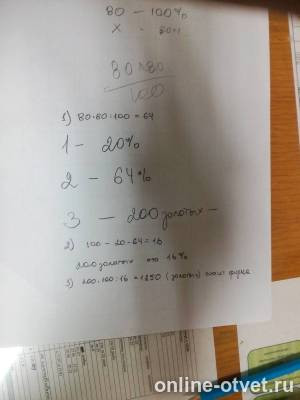 80 - 100%
x - 80%
80·80
100
1) 80·80:100=64
1 - 20%
2 - 64%
3 - 200 золотых -
2) 100-20-64=16
200 золотых это 16%
3) 200·100:16=1250 (золотых) стоит
online-otvet.ru